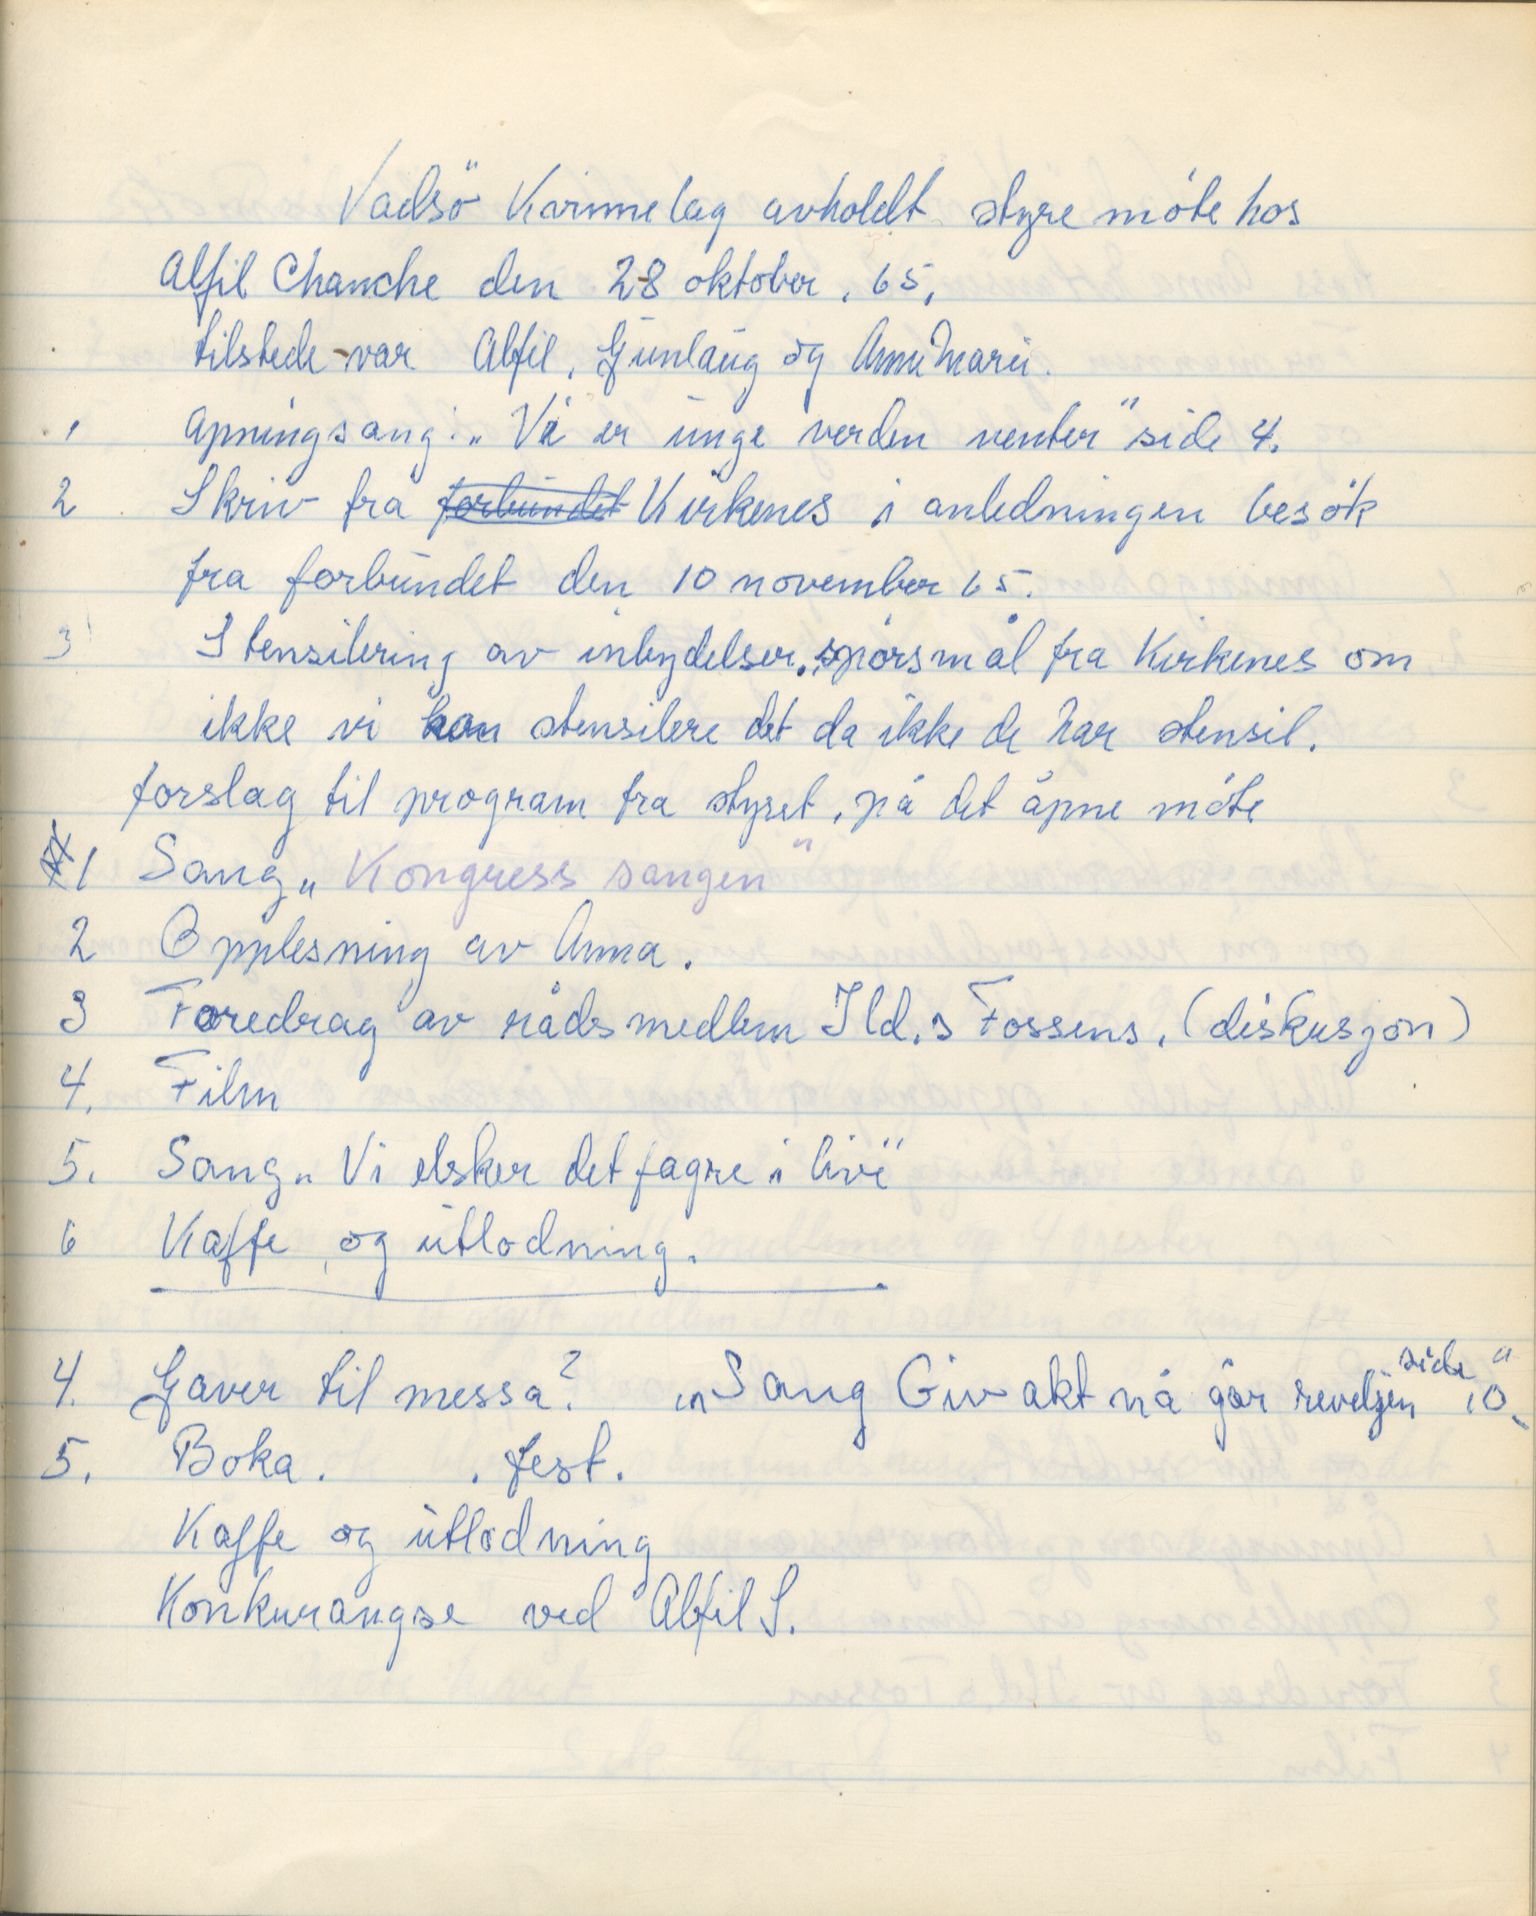 Vadsö Kvinnelag avholdt styremöte hos
Alfil Chanche den 28 oktober. 65.
tilstede var Alfil, Gunlaug og AnneMarie.
1 Apningsang: „Vi er unge verden venter" side 4.
2 Skriv fra forbundet Kirkenes i anledningen besök
fra forbundet den 10 november 65.
3 Stensilering av inbydelser, spörsmål fra Kirkenes om
ikke vi kan stensilere det da ikke de har stensil.
forslag til program fra styret, på det åpne möte
1 Sang „Kongress sangen"
2 Opplesning av Anna.
3 Foredrag av rådsmedlem Ild.s Fossens. (diskusjon)
4. Film
5. Sang „Vi elsker det fagre i livi"
6 Kaffe og utlodning.
4. Gaver til messa? „Sang Giv akt nå går reveljen side 10"
5. Boka. . fest.
Kaffe og utlodning
Konkurangse ved Alfil S.